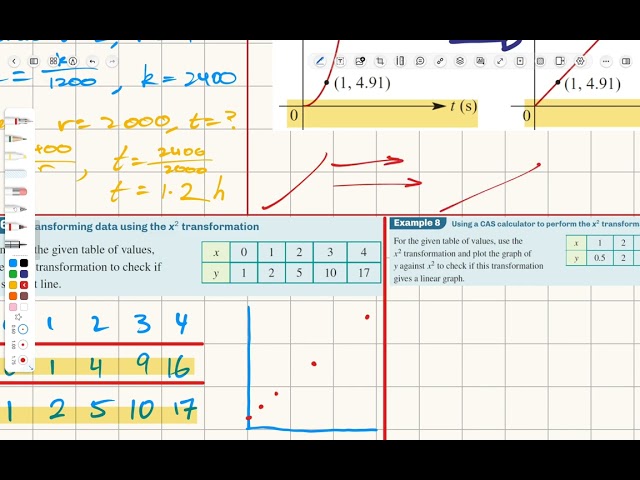 k
1200 , k = 2400
r = 2000, t = ?
r , t = 2400
2000
t = 1.2 h
(1, 4.91)
0
t (s)
(1, 4.91)
0
ansforming data using the x² transformation
the given table of values,
transformation to check if
s t line.
x 0 1 2 3 4
y 1 2 5 10 17
1 2 3 4
1 4 9 16
1 2 5 10 17
Example 8 Using a CAS calculator to perform the x² transform
For the given table of values, use the
x² transformation and plot the graph of
y against x² to check if this transformation
gives a linear graph.
x 1 2
y 0.5 2